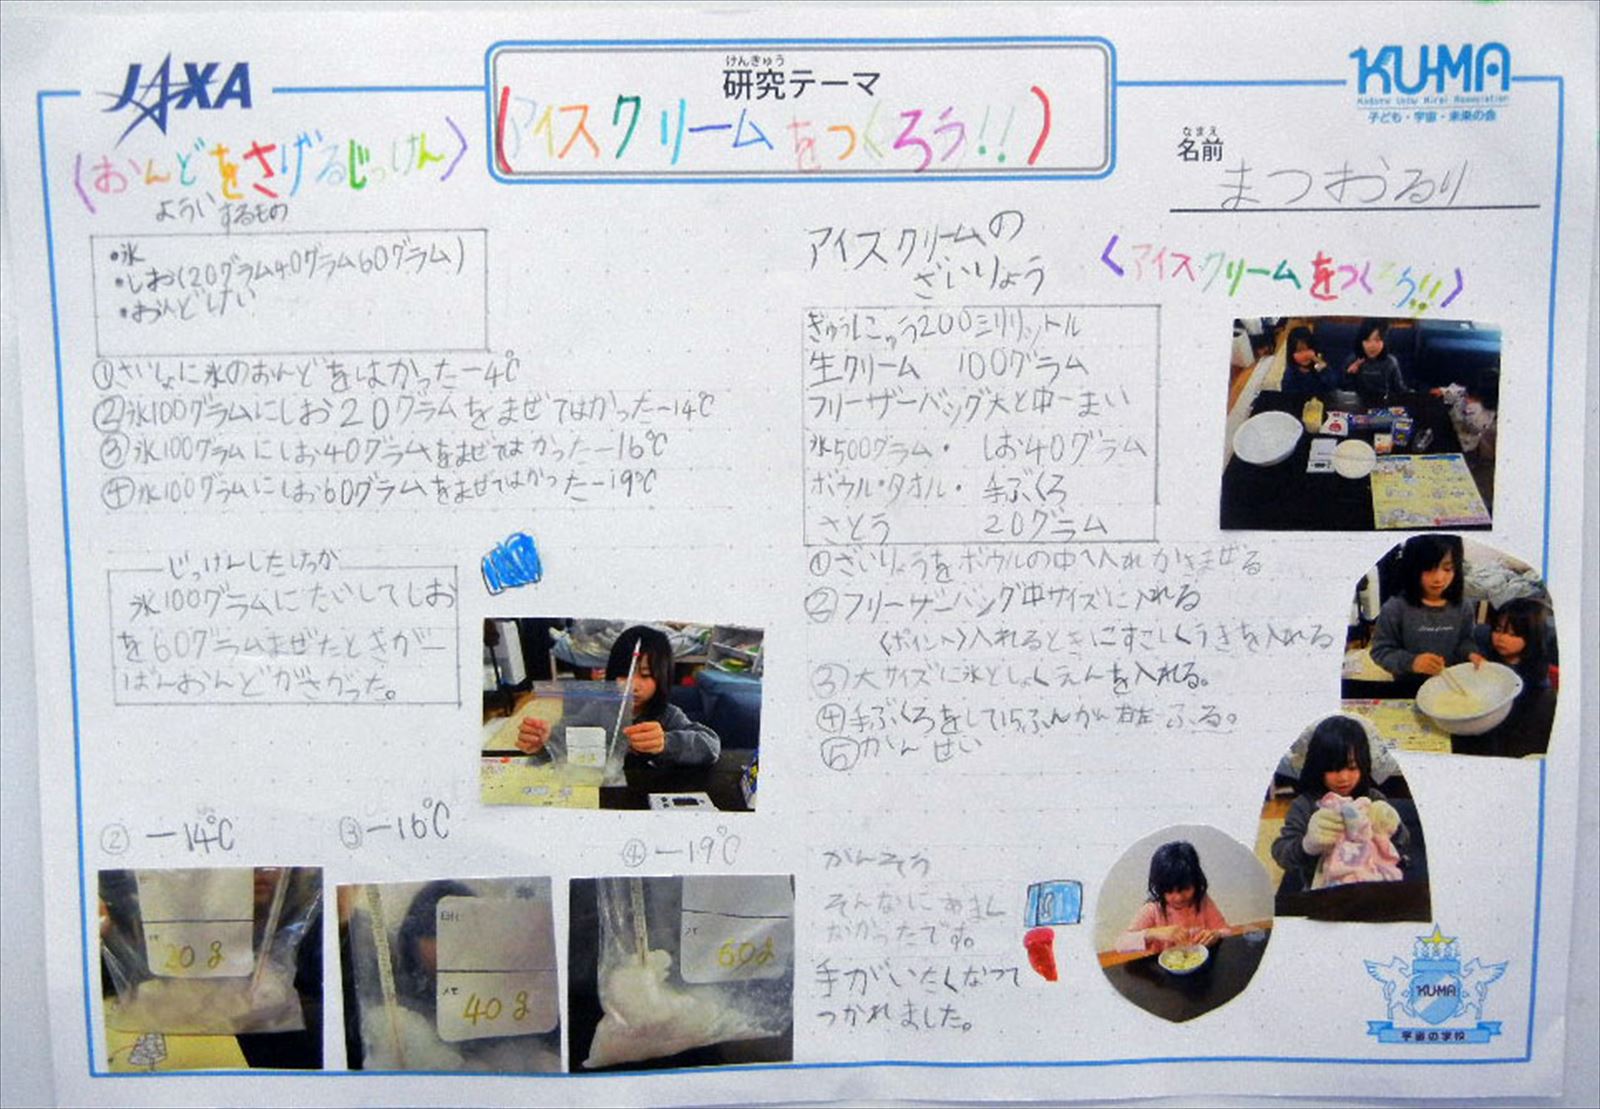 JAXA
けんきゅう
研究テーマ
(アイスクリームをつくろう!!)
KU-MA
Kodomo Uchu Mirai Association
子ども・宇宙・未来の会
なまえ
名前
まつおるり
<おんどをさげるじっけん>
よういするもの
・氷
・しお(20グラム40グラム60グラム)
・おんどけい
①さいしょに氷のおんどをはかった-4℃
②氷100グラムにしお20グラムをまぜてはかった-14℃
③氷100グラムにしお40グラムをまぜてはかった-16℃
④氷100グラムにしお60グラムをまぜてはかった-19℃
じっけんしたけっか
氷100グラムにたいしてしお
を60グラムまぜたときが一
ばんおんどがさがった。
②-14℃
③-16℃
④-19℃
20g
メモ
40g
60g
アイスクリームの
ざいりょう
ぎゅうにゅう200ミリリットル
生クリーム 100グラム
フリーザーバッグ大と中一まい
氷500グラム・ しお40グラム
ボウル・タオル・ 手ぶくろ
さとう 20グラム
<アイスクリームをつくろう!!>
①ざいりょうをボウルの中へ入れかきまぜる
②フリーザーバッグ中サイズに入れる
<ポイント>入れるときにすこしくうきを入れる
③大サイズに氷としょくえんを入れる。
④手ぶくろをして15ふんかん右左ふる。
⑤かんせい
かんそう
そんなにあまく
なかったです。
手がいたくなって
つかれました。
KUMA
宇宙の学校